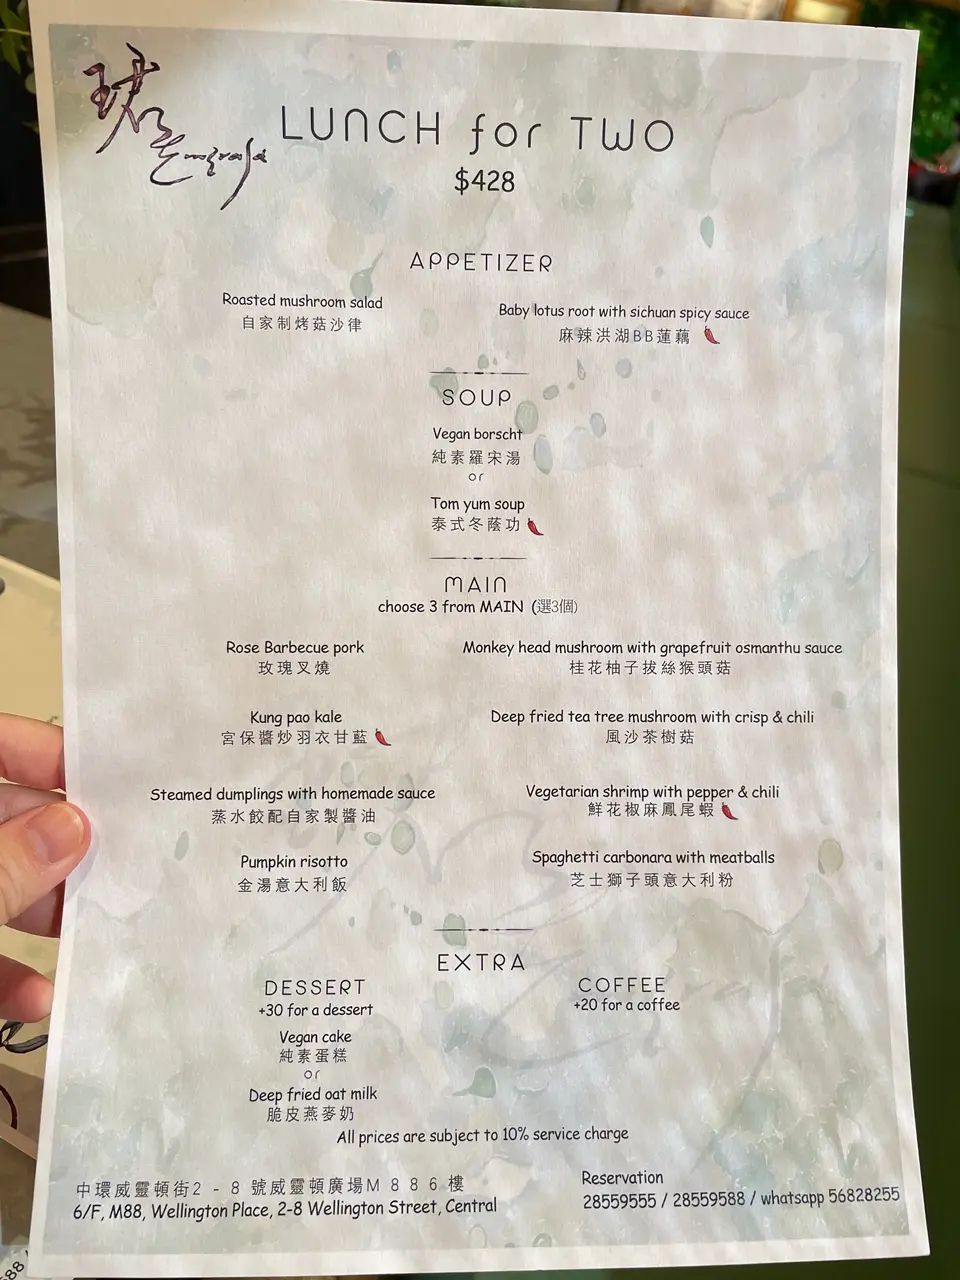 珺
LUNCH for TWO
$428
APPETIZER
Roasted mushroom salad
自家制烤菇沙律
Baby lotus root with sichuan spicy sauce
麻辣洪湖BB蓮藕
SOUP
Vegan borscht
純素羅宋湯
or
Tom yum soup
泰式冬蔭功
MAIN
choose 3 from MAIN (選3個)
Rose Barbecue pork
玫瑰叉燒
Monkey head mushroom with grapefruit osmanthu sauce
桂花柚子拔絲猴頭菇
Kung pao kale
宮保醬炒羽衣甘藍
Deep fried tea tree mushroom with crisp & chili
風沙茶樹菇
Steamed dumplings with homemade sauce
蒸水餃配自家製醬油
Vegetarian shrimp with pepper & chili
鮮花椒麻鳳尾蝦
Pumpkin risotto
金湯意大利飯
Spaghetti carbonara with meatballs
芝士獅子頭意大利粉
EXTRA
DESSERT
+30 for a dessert
Vegan cake
純素蛋糕
or
Deep fried oat milk
脆皮燕麥奶
COFFEE
+20 for a coffee
All prices are subject to 10% service charge
中環威靈頓街2 - 8 號威靈頓廣場M 8 8 6 樓
6/F, M88, Wellington Place, 2-8 Wellington Street, Central
Reservation
28559555 / 28559588 / whatsapp 56828255